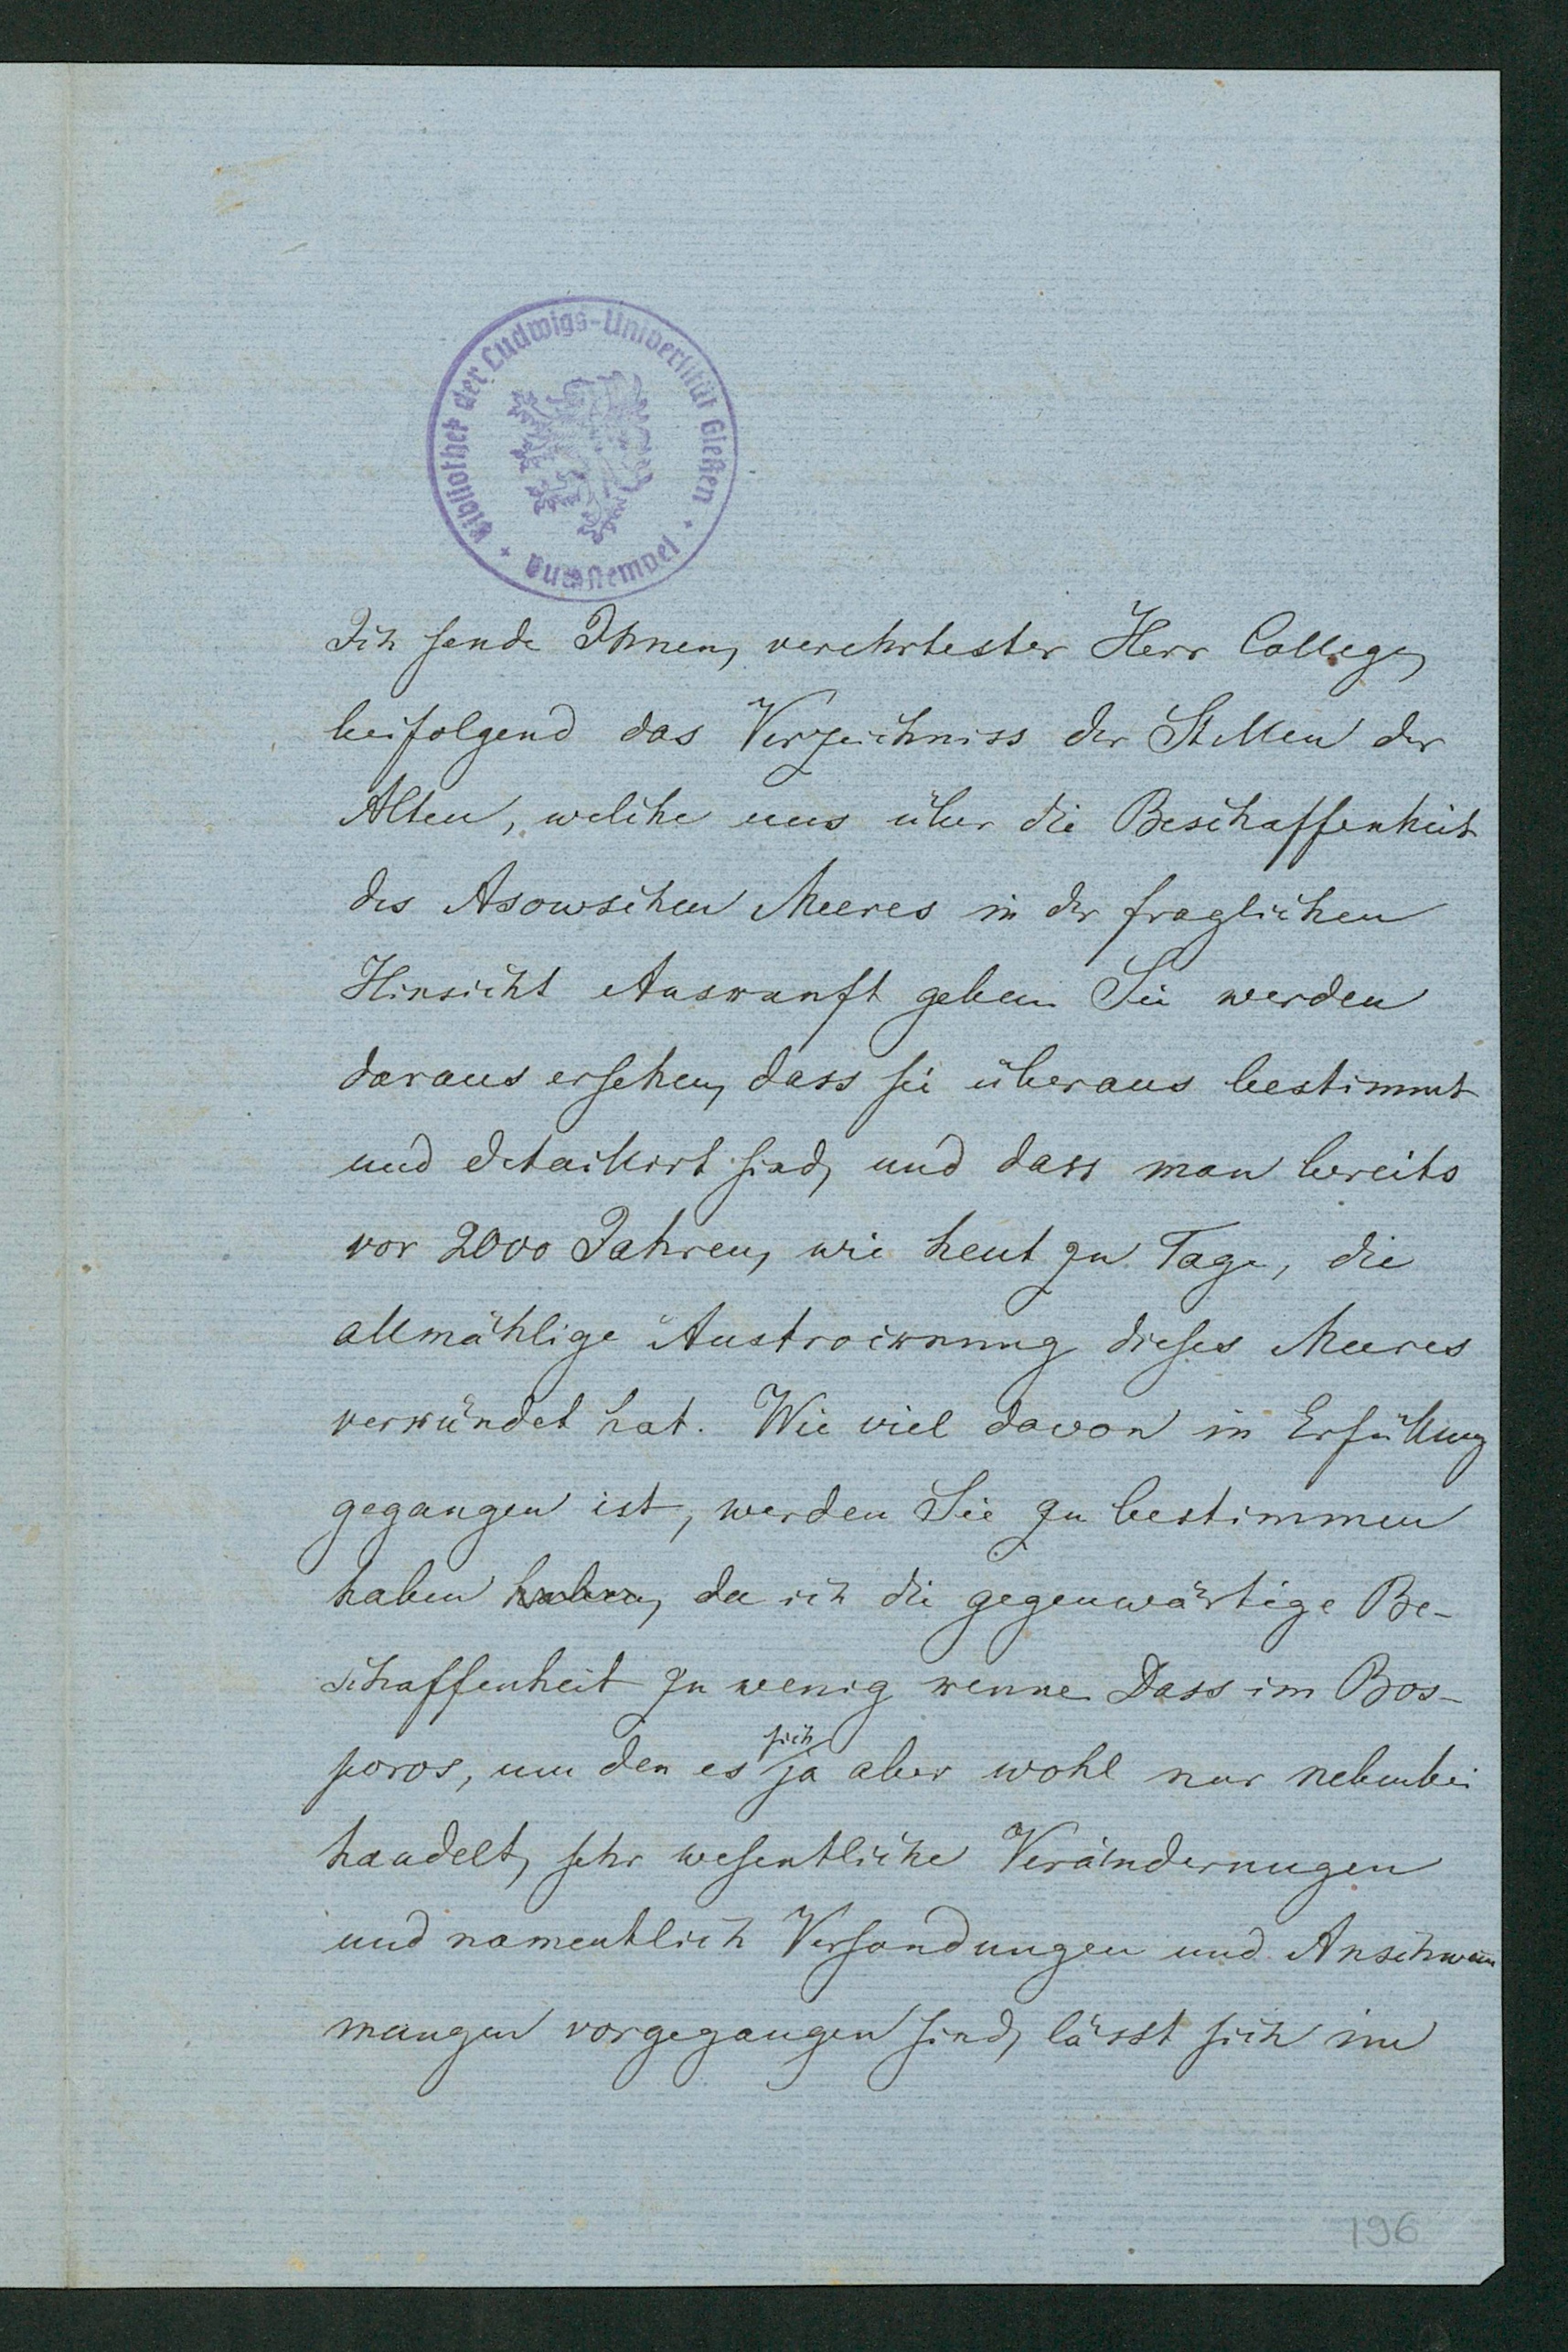 Bibliothek der Ludwigs-Universität Gießen
Buchstempel
Ich sende Ihnen, verehrtester Herr College,
beifolgend das Verzeichniss der Stellen der
Alten, welche uns über die Beschaffenheit
des Asowschen Meeres in der fraglichen
Hinsicht Auskunft geben. Sie werden
daraus ersehen, dass sie überaus bestimmt
und detaillirt sind, und dass man bereits
vor 2000 Jahren, wie heut zu Tage, die
allmählige Austrocknung dieses Meeres
verkündet hat. Wie viel davon in Erfüllung
gegangen ist, werden Sie zu bestimmen
haben haben, da ich die gegenwärtige Be-
schaffenheit zu wenig kenne. Dass im Bos-
poros, um den es sich ja aber wohl nur nebenbei
handelt, sehr wesentliche Veränderungen
und namentlich Versandungen und Anschwem
mungen vorgegangen sind, lässt sich im
196